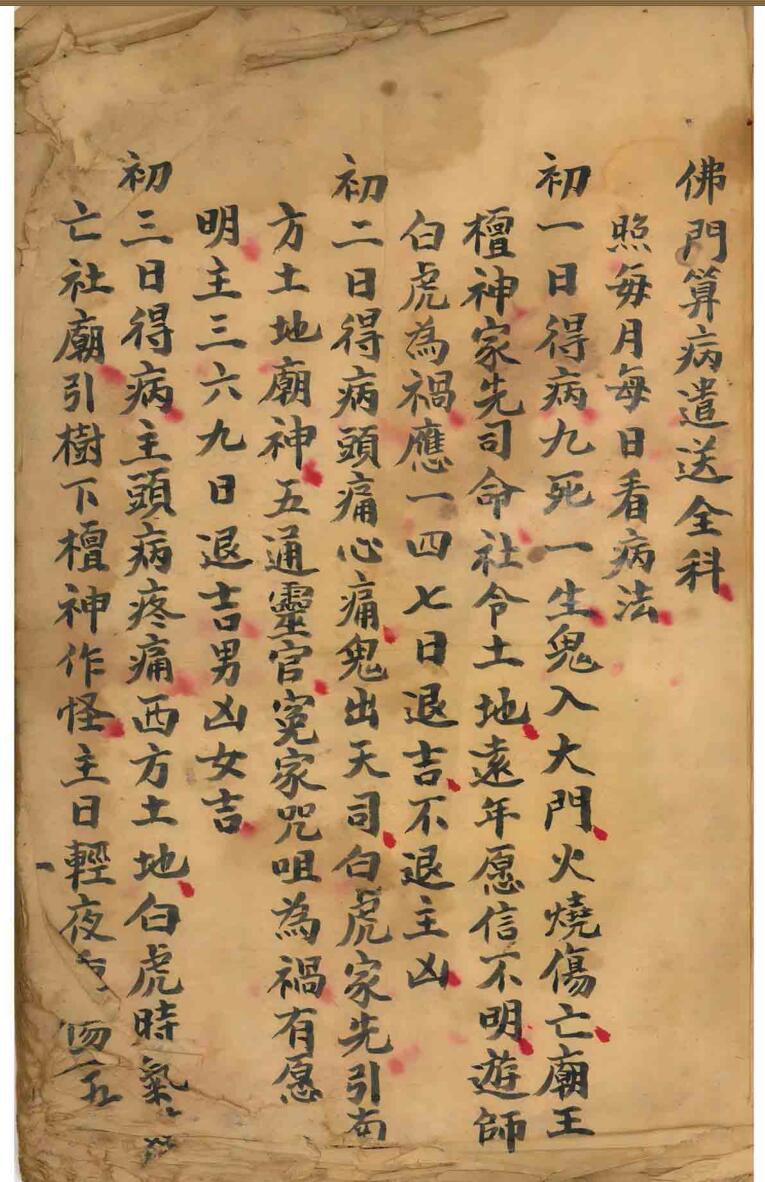 佛門算病遣送全科
照每月每日看病法
初一日得病九死一生鬼入大門火燒傷亡廟王
檀神家先司命社令土地遠年愿信不明遊師
白虎為禍應一四七日退吉不退主凶
初二日得病頭痛心痛鬼出天司白虎家先引南
方土地廟神五通靈官冤家咒咀為禍有愿
明主三六九日退吉男凶女吉
初三日得病主頭病疼痛西方土地白虎時氣
亡社廟引樹下檀神作怪主日輕夜 四五